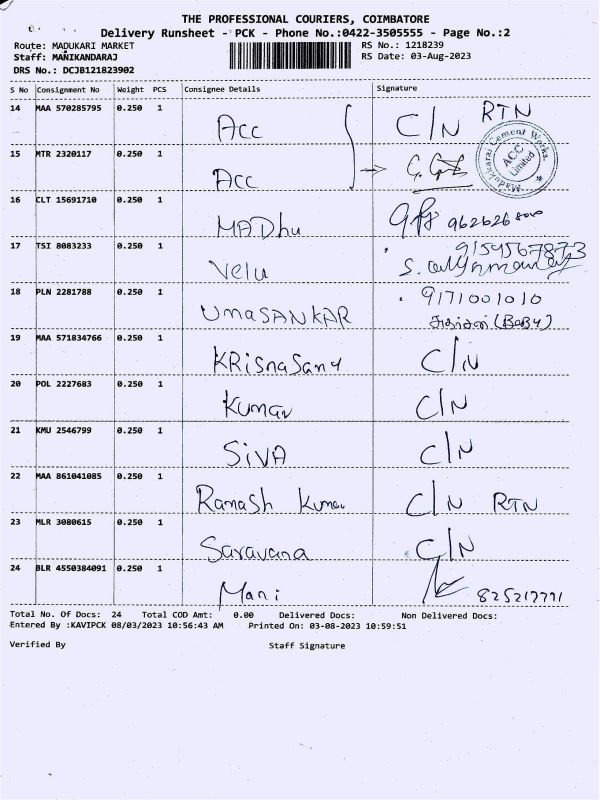 THE PROFESSIONAL COURIERS, COIMBATORE
Delivery Runsheet - PCK - Phone No.:0422-3505555 - Page No.:2
Route: MADUKARI MARKET RS No.: 1218239
Staff: MANIKANDARAJ RS Date: 03-Aug-2023
DRS No.: DCJB121823902
S No Consignment No Weight PCS Consignee Details Signature
14 MAA 570285795 0.250 1 Acc C/N RTN
15 MTR 2320117 0.250 1 Acc
Madukkarai Cement Works.
ACC Limited
16 CLT 15691710 0.250 1 MADhu
17 TSI 8083233 0.250 1 Velu 9159567873
18 PLN 2281788 0.250 1 UmaSANKAR 9171001010
(BABY)
19 MAA 571834766 0.250 1 KRisnaSamy C/N
20 POL 2227683 0.250 1 Kumar C/N
21 KMU 2546799 0.250 1 SiVA C/N
22 MAA 861041085 0.250 1 Ramash Kumar C/N RTN
23 MLR 3080615 0.250 1 Saravana C/N
24 BLR 4550384091 0.250 1 Mani
Total No. Of Docs: 24 Total COD Amt: 0.00 Delivered Docs: Non Delivered Docs:
Entered By :KAVIPCK 08/03/2023 10:56:43 AM Printed On: 03-08-2023 10:59:51
Verified By Staff Signature